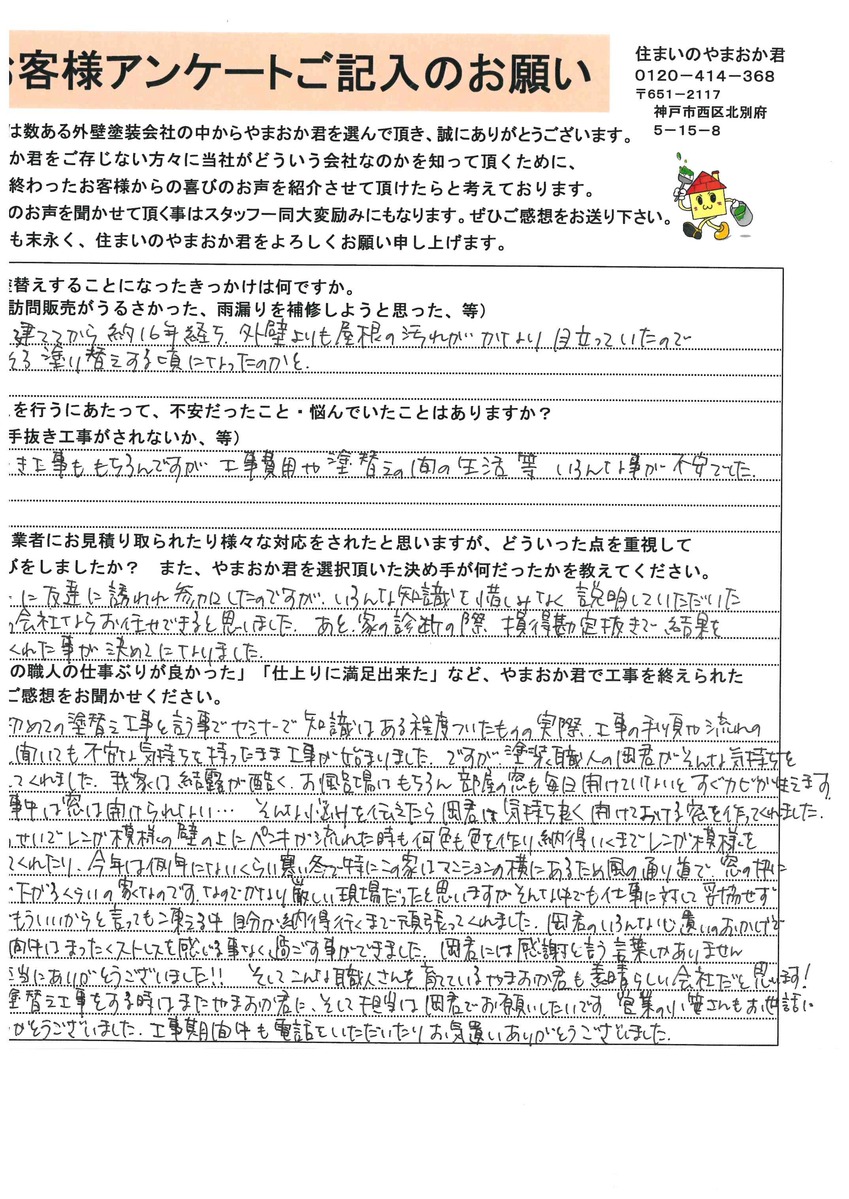 お客様アンケートご記入のお願い
住まいのやまおか君
0120-414-368
〒651-2117
神戸市西区北別府
5-15-8
は数ある外壁塗装会社の中からやまおか君を選んで頂き、誠にありがとうございます。
か君をご存じない方々に当社がどういう会社なのかを知って頂くために、
終わったお客様からの喜びのお声を紹介させて頂けたらと考えております。
のお声を聞かせて頂く事はスタッフ一同大変励みにもなります。ぜひご感想をお送り下さい。
も末永く、住まいのやまおか君をよろしくお願い申し上げます。
塗替えすることになったきっかけは何ですか。
訪問販売がうるさかった、雨漏りを補修しようと思った、等)
建ててから約16年経ち、外壁よりも屋根の汚れがかなり目立っていたので
そろ塗り替えする頃になったのかと.
を行うにあたって、不安だったこと・悩んでいたことはありますか?
手抜き工事がされないか、等)
き工事ももちろんですが 工事費用や塗替えの間の生活等 いろんな事が不安でした.
業者にお見積り取られたり様々な対応をされたと思いますが、どういった点を重視して
びをしましたか? また、やまおか君を選択頂いた決め手が何だったかを教えてください。
に友達に誘われ参加したのですが、いろんな知識を惜しみなく説明していただいた
会社ならお任せできると思いました. あと、家の診断の際、損得勘定抜きで結果を
くれた事が決めてになりました.
の職人の仕事ぶりが良かった」「仕上りに満足出来た」など、やまおか君で工事を終えられた
ご感想をお聞かせください。
めての塗替え工事と言う事でセミナーで知識はある程度ついたものの実際、工事の手順や流れの
聞いても不安な気持ちを持ったまま工事が始まりました. ですが塗装職人の岡君がそんな気持ちを
てくれました. 我家は結露が酷く、お風呂場はもちろん部屋の窓も毎日開けていないとすぐカビが生えます.
事中は窓は開けられない… そんな心配を伝えたら岡君は気持ち良く開けておける窓を作ってくれました.
せいでレンガ模様の壁の上にペンキが流れた時も何色も色を作り、納得いくまでレンガ模様を
てくれたり、今年は例年にないくらい寒い冬で特にこの家はマンションの横にあるため風の通り道で、窓の
下がるくらいの家なのです. なのでかなり厳しい現場だったと思いますがそんな中でも仕事に対して妥協せず
もういいからと言っても凍える中 自分が納得行くまで頑張ってくれました. 岡君のいろんな心遣いのおかげで
間中はまったくストレスを感じる事なく過ごす事ができました. 岡君には感謝と言う言葉しかありません
当にありがとうございました!! そしてこんな職人さんを育てているやまおか君も素晴らしい会社だと思います!
塗替え工事をする時はまたやまおか君に、そして担当は岡君でお願いしたいです. 営業の小笹さんもお世話に
がとうございました. 工事期間中も電話をいただいたりお気遣いありがとうございました.